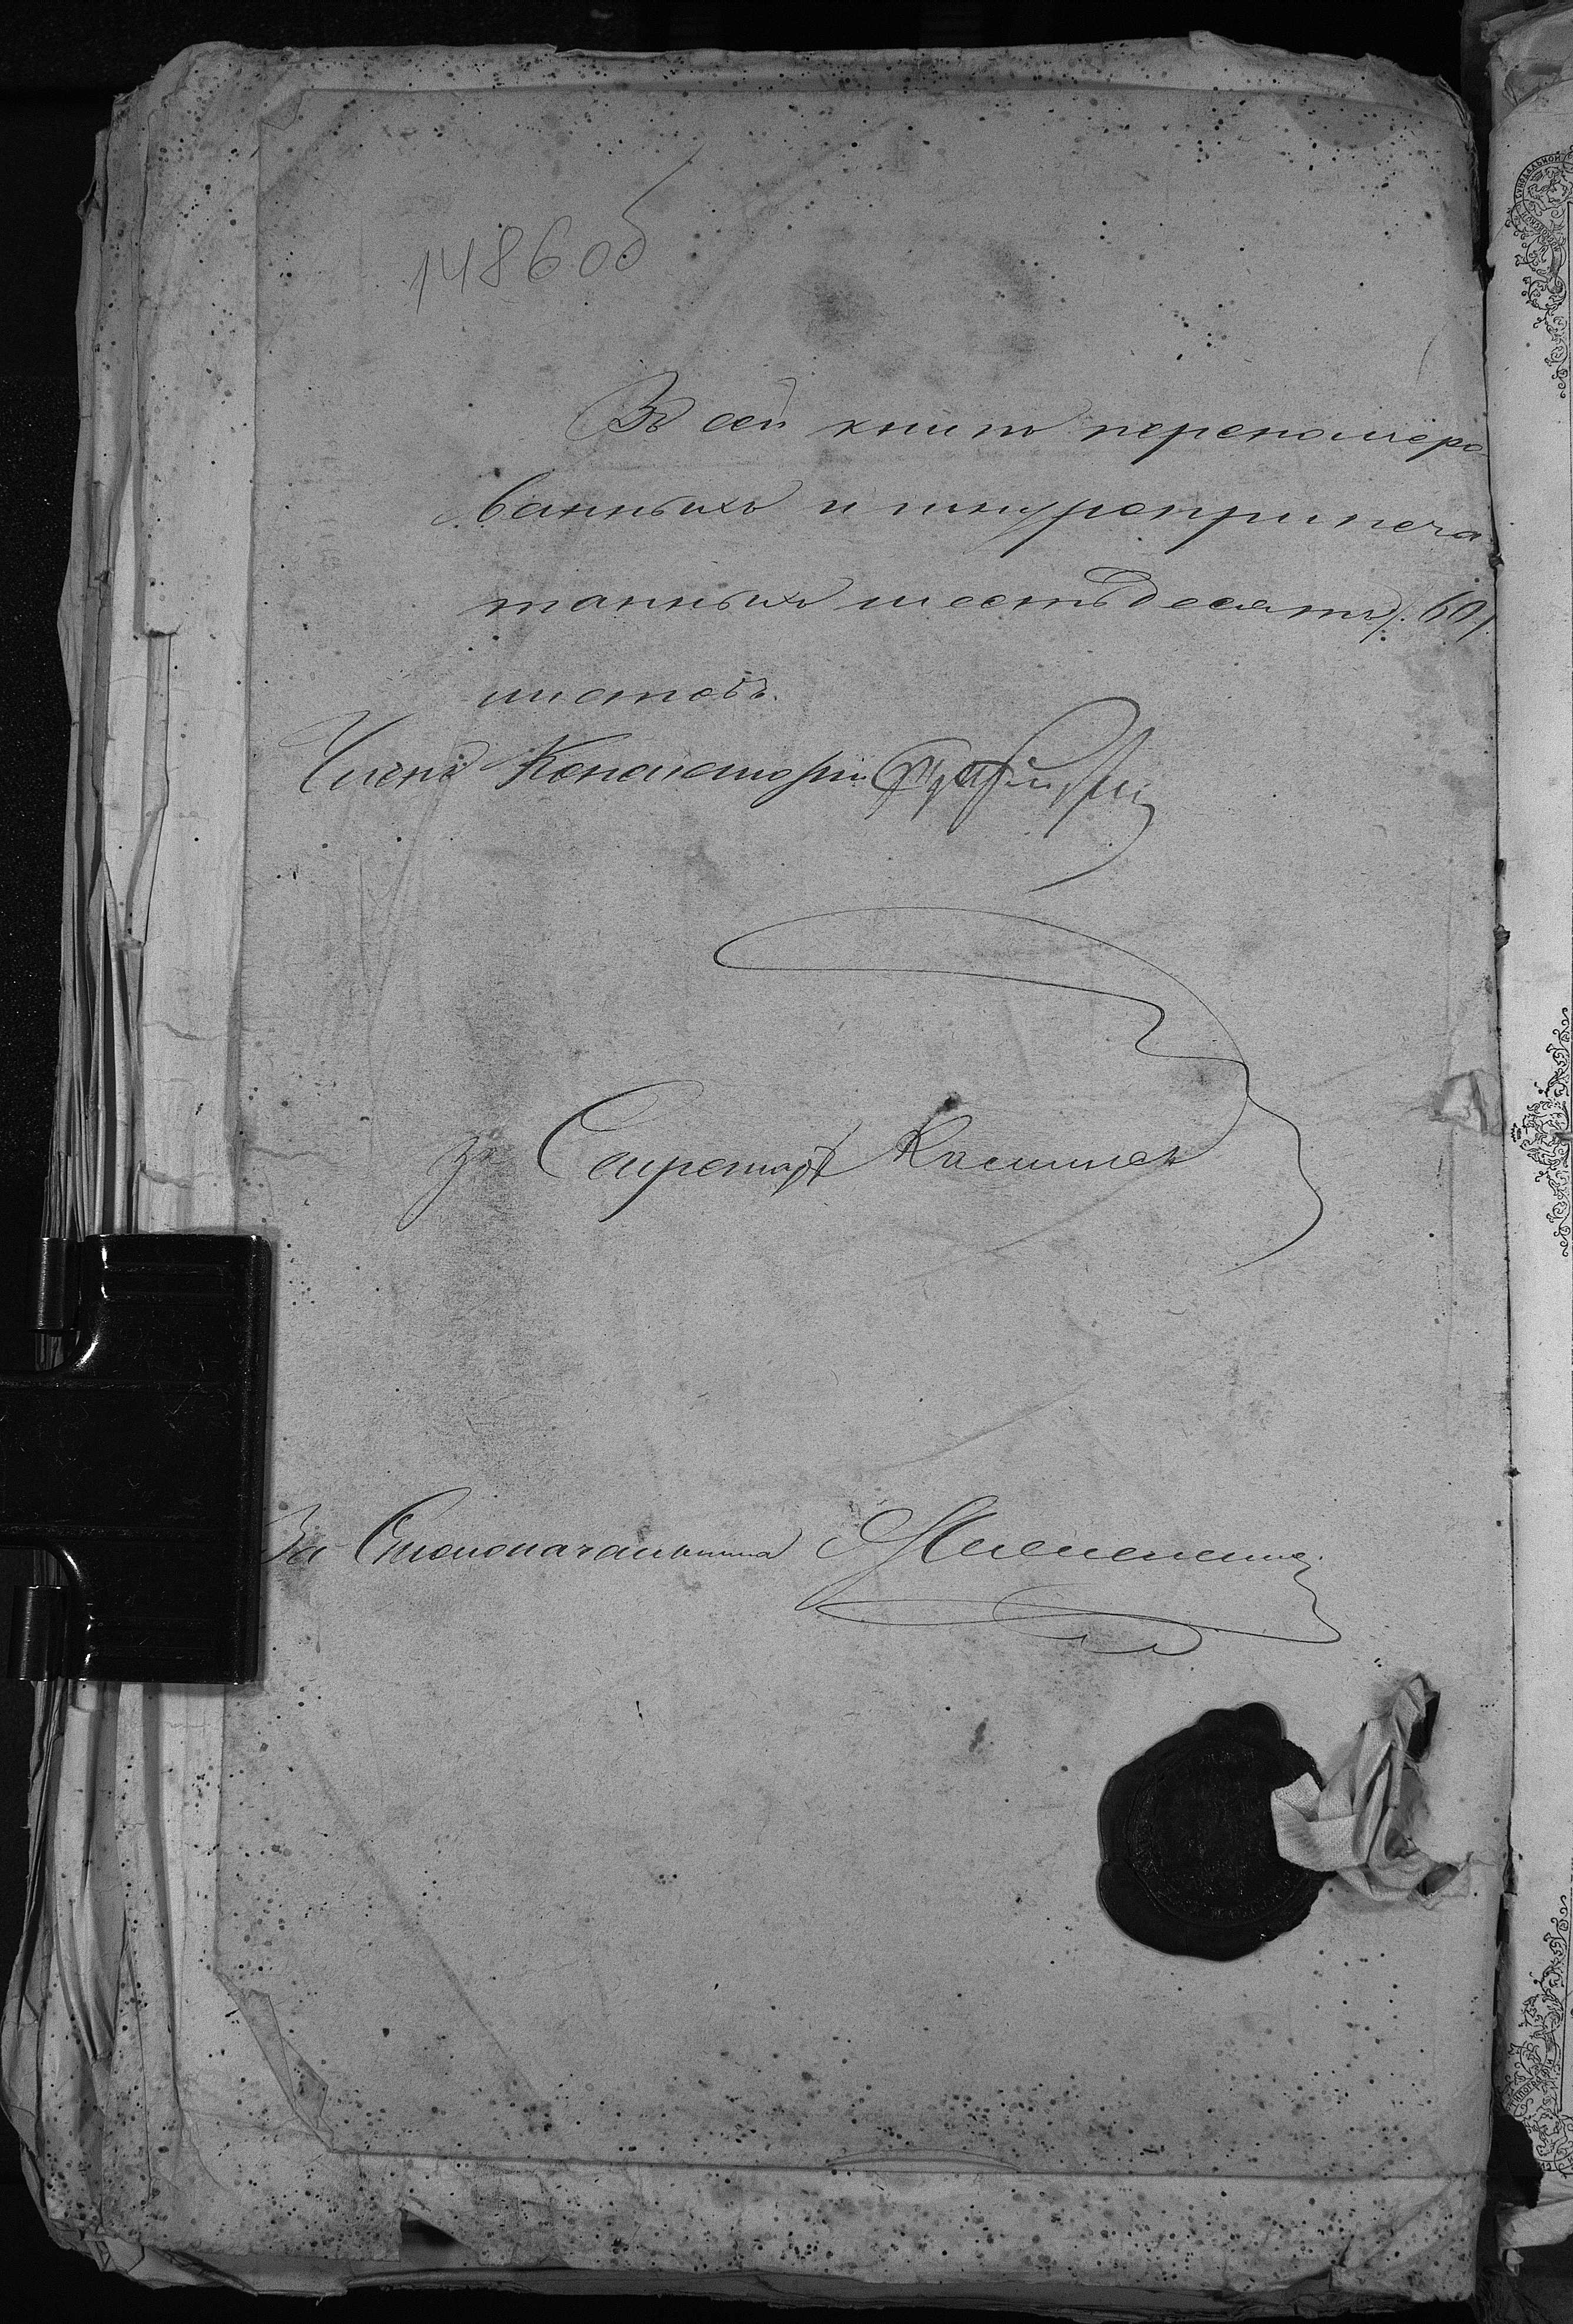 148б об
Въ сей книгѣ переномеро-
ванныхъ и шнуроприпеча
танныхъ шестьдесятъ /. 60 /.
листовъ.
Членъ Консисторіи
За Секретаря
За Столоначальника